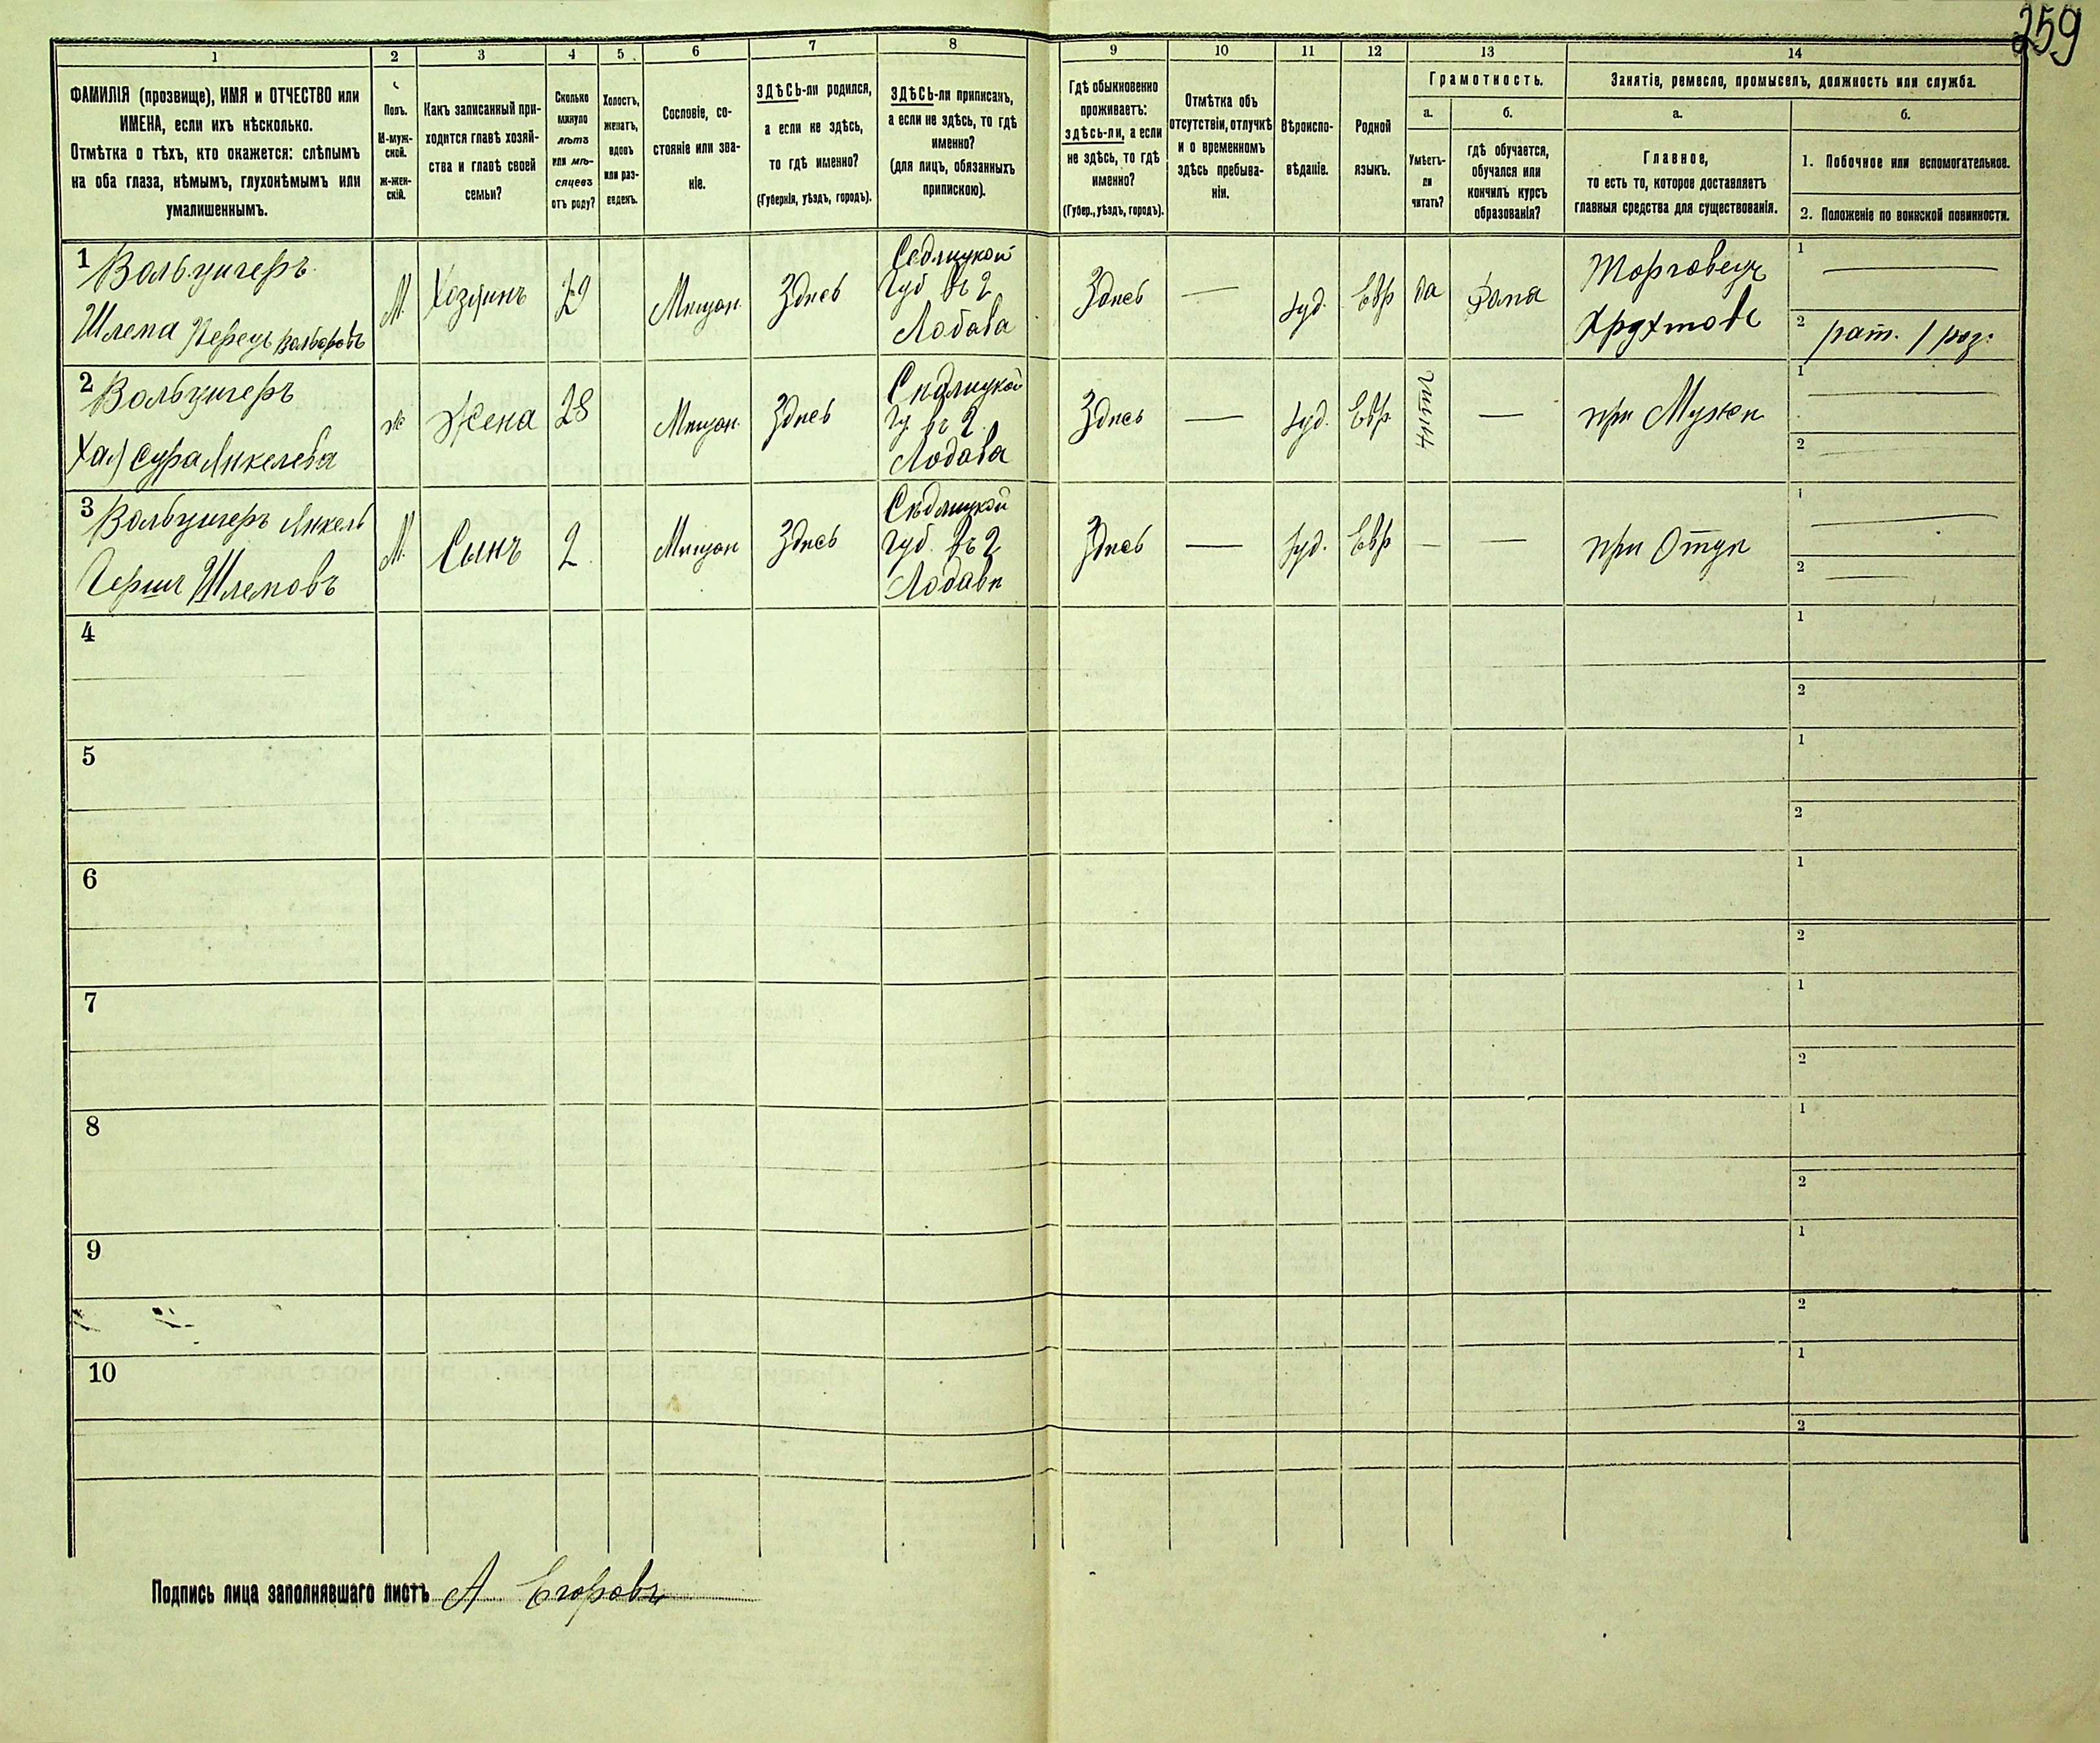 259
1 2 3 4 5 6 7 8 9 10 11 12 13 14
ФАМИЛІЯ (прозвище), ИМЯ и ОТЧЕСТВО или
ИМЕНА, если ихъ нѣсколько.
Отмѣтка о тѣхъ, кто окажется: слѣпымъ
на оба глаза, нѣмымъ, глухонѣмымъ или
умалишеннымъ.
Полъ.
М-муж-
ской.
ж-жен-
скій.
Какъ записанный при-
ходится главѣ хозяй-
ства и главѣ своей
семьи?
Сколько
минуло
лѣтъ
или мѣ-
сяцевъ
отъ роду?
Холостъ,
женатъ,
вдовъ
или раз-
веденъ.
Сословіе, со-
стояніе или зва-
ніе.
ЗДѢСЬ-ли родился,
а если не здѣсь,
то гдѣ именно?
(Губернія, уѣздъ, городъ).
ЗДѢСЬ-ли приписанъ,
а если не здѣсь, то гдѣ
именно?
(для лицъ, обязанныхъ
припискою).
Гдѣ обыкновенно
проживаетъ:
здѣсь-ли, а если
не здѣсь, то гдѣ
именно?
(Губер., уѣздъ, городъ).
Отмѣтка объ
отсутствіи, отлучкѣ
и о временномъ
здѣсь пребыва-
ніи.
Вѣроиспо-
вѣданіе.
Родной
языкъ.
Грамотность.
а.
Умѣетъ-
ли
читать?
б.
гдѣ обучается,
обучался или
кончилъ курсъ
образованія?
Занятіе, ремесло, промыселъ, должность или служба.
а.
Главное,
то есть то, которое доставляетъ
главныя средства для существованія.
б.
1. Побочное или вспомогательное.
2. Положеніе по воинской повинности.
1 Вольцигеръ
Шлема Перецъ
М. Хозяинъ 29 Мещан. Здѣсь
Седлицкой
Губ въ г
Лодава
Здѣсь — Іуд. Евр да Дома
Торговецъ
1 —
2 рат. 1 раз.
2 Вольцигеръ
Хая Сура Янкелева
ж Жена 28 Мещан. Здѣсь
Седлицкой
Гу. въ г.
Лодава
Здѣсь — Іуд. Евр нѣтъ — при Мужѣ
1 —
2
3 Вольцигеръ Янкель
Герш Шлемовъ
М. Сынъ 2 Мещан Здѣсь
Седлицкой
Губ. въ г
Лодавѣ
Здѣсь — Іуд. Евр — — при Отцѣ
1 —
2 —
4 1
2
5 1
2
6 1
2
7 1
2
8 1
2
9 1
2
10 1
2
Подпись лица заполнявшаго листъ А Егоровъ